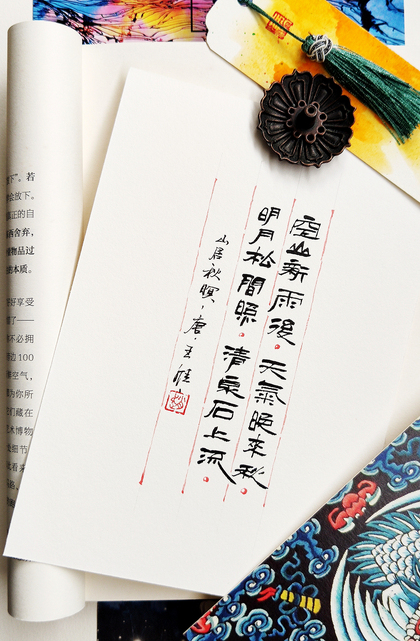 空山新雨後 天氣晚來秋
明月松間照 清泉石上流
山居秋暝 唐 王維
下”。若
会放下。
正的自
舍弃,
物品过
的本质。
好享受
了——
不必拥
边100
空气,
为你所
们藏在
术博物
处细节
看来